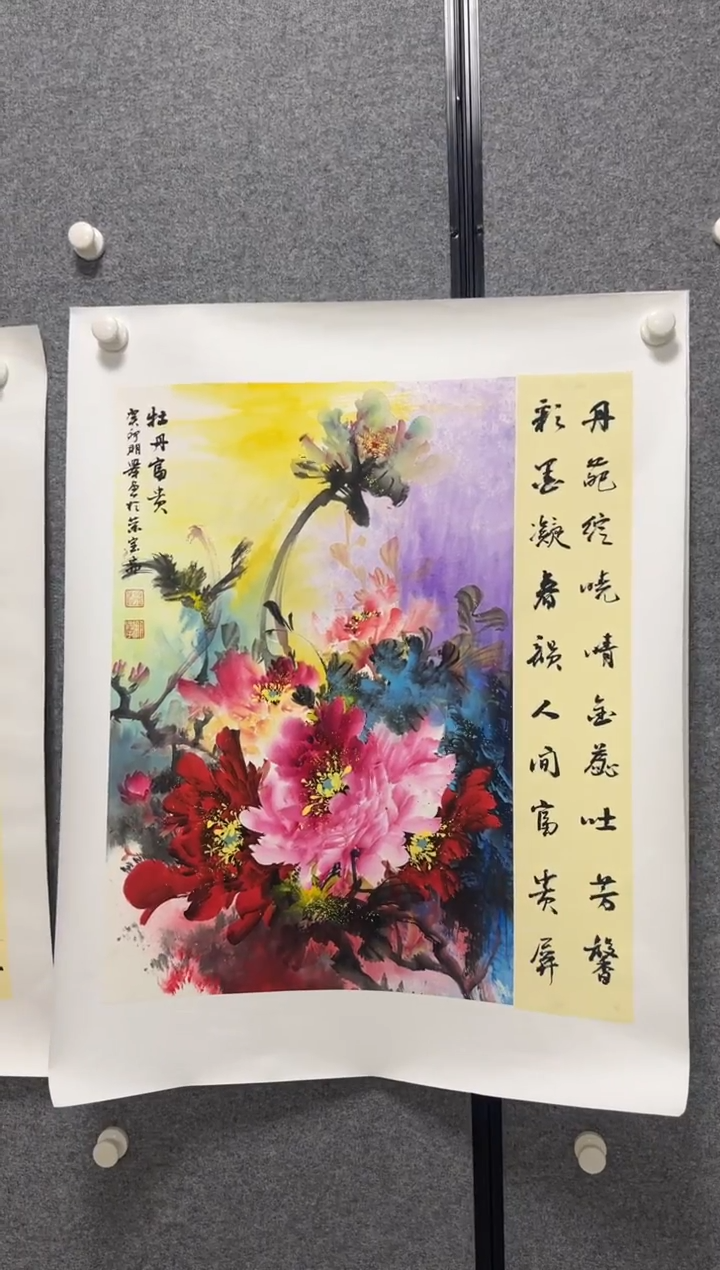 丹葩绽晓晴金蕊吐芳馨
彩墨凝春韻人间富贵屏
牡丹富贵
癸卯明举画於